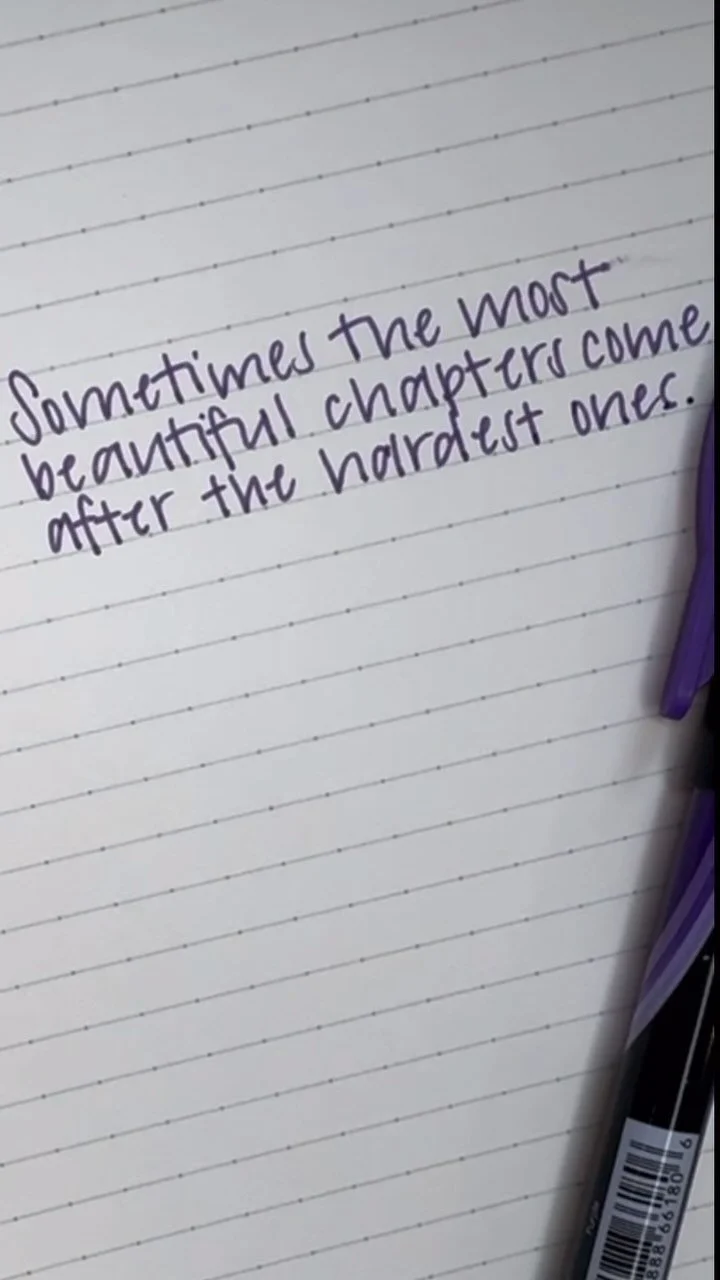 Sometimes the most
beautiful chapters come
after the hardest ones.
888 66180 6